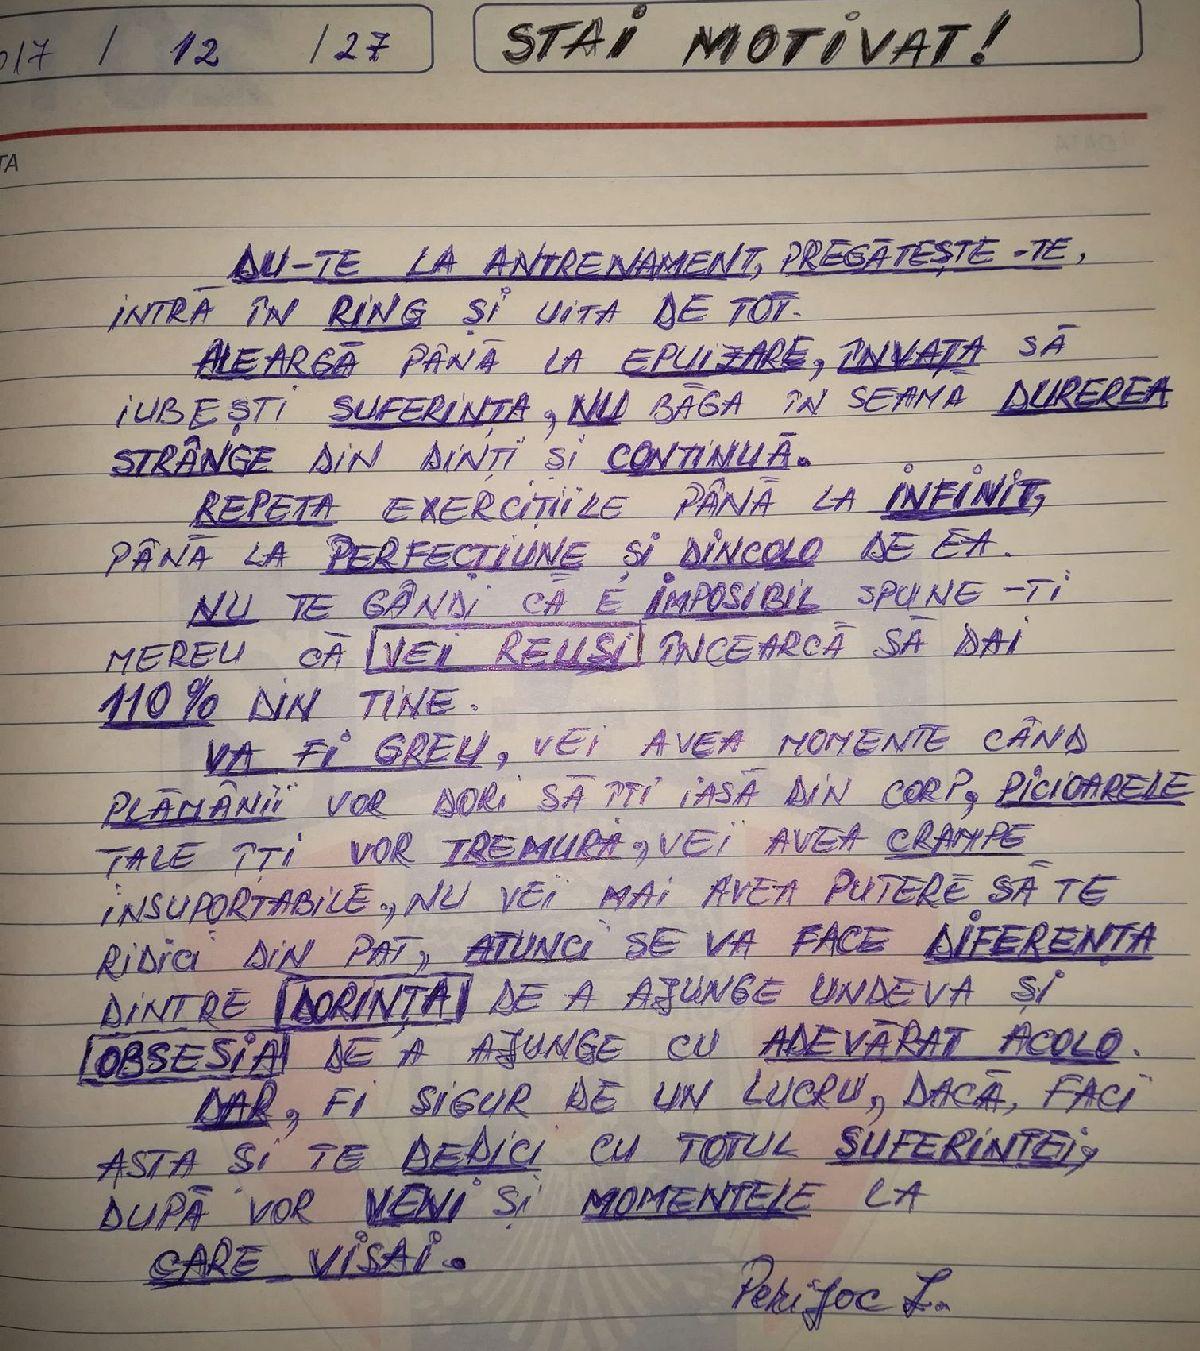 017 / 12 / 27 STAI MOTIVAT!
TA
DU-TE LA ANTRENAMENT, PREGĂTEȘTE-TE,
INTRĂ ÎN RING ȘI UITA DE TOT.
ALEARGĂ PÂNĂ LA EPUIZARE, ÎNVAȚA SĂ
IUBEȘTI SUFERINȚA, NU BĂGA ÎN SEAMĂ DUREREA
STRÂNGE DIN DINȚI ȘI CONTINUĂ.
REPETA EXERCIȚIILE PÂNĂ LA INFINIT,
PÂNĂ LA PERFECȚIUNE ȘI DINCOLO DE EA.
NU TE GÂNDI CĂ E IMPOSIBIL SPUNE-TI
MEREU CĂ VEI REUȘI ÎNCEARCĂ SĂ DAI
110% DIN TINE.
VA FI GREU, VEI AVEA MOMENTE CÂND
PLĂMÂNII VOR DORI SĂ ÎȚI IASĂ DIN CORP, PICIOARELE
TALE ÎȚI VOR TREMURA, VEI AVEA CRAMPE
INSUPORTABILE, NU VEI MAI AVEA PUTERE SĂ TE
RIDICI DIN PAT, ATUNCI SE VA FACE DIFERENȚA
DINTRE DORINȚA DE A AJUNGE UNDEVA ȘI
OBSESIA DE A AJUNGE CU ADEVĂRAT ACOLO.
DAR, FI SIGUR DE UN LUCRU, DACĂ, FACI
ASTA ȘI TE DEDICI CU TOTUL SUFERINTEI,
DUPĂ VOR VENI ȘI MOMENTELE LA
CARE VISAI.